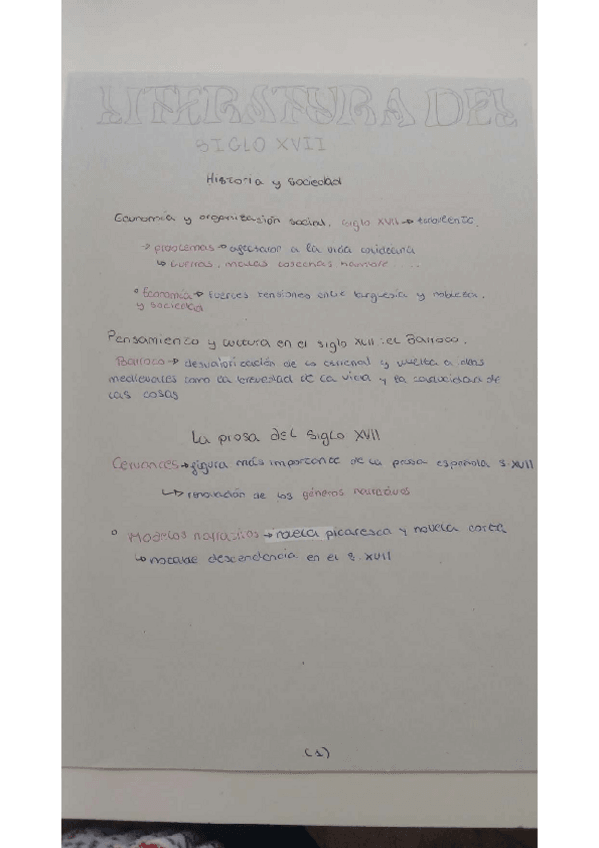 LITERATURA DEL
SIGLO XVII
Historia y sociedad
Economía y organización social. Siglo XVII →
→ problemas → afectaron a la vida cotidiana
↳ Guerras, malas cosechas, hambre....
• Economía → Fuertes tensiones entre burguesía y nobleza.
y sociedad
Pensamiento y cultura en el siglo XVII: el Barroco.
Barroco → desvalorización de lo terrenal y vuelta a ideas
medievales como la brevedad de la vida y la caducidad de
las cosas
La prosa del siglo XVII
Cervantes → figura más importante de la prosa española s. XVII
↳ renovación de los géneros narrativos
• Modelos narrativos → novela picaresca y novela corta
↳ notable descendencia en el s. XVII
(1)